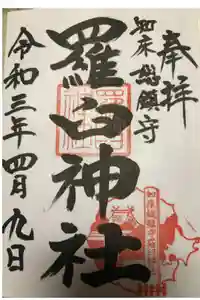 奉拝
知床総鎮守
羅臼神社
令和三年四月九日